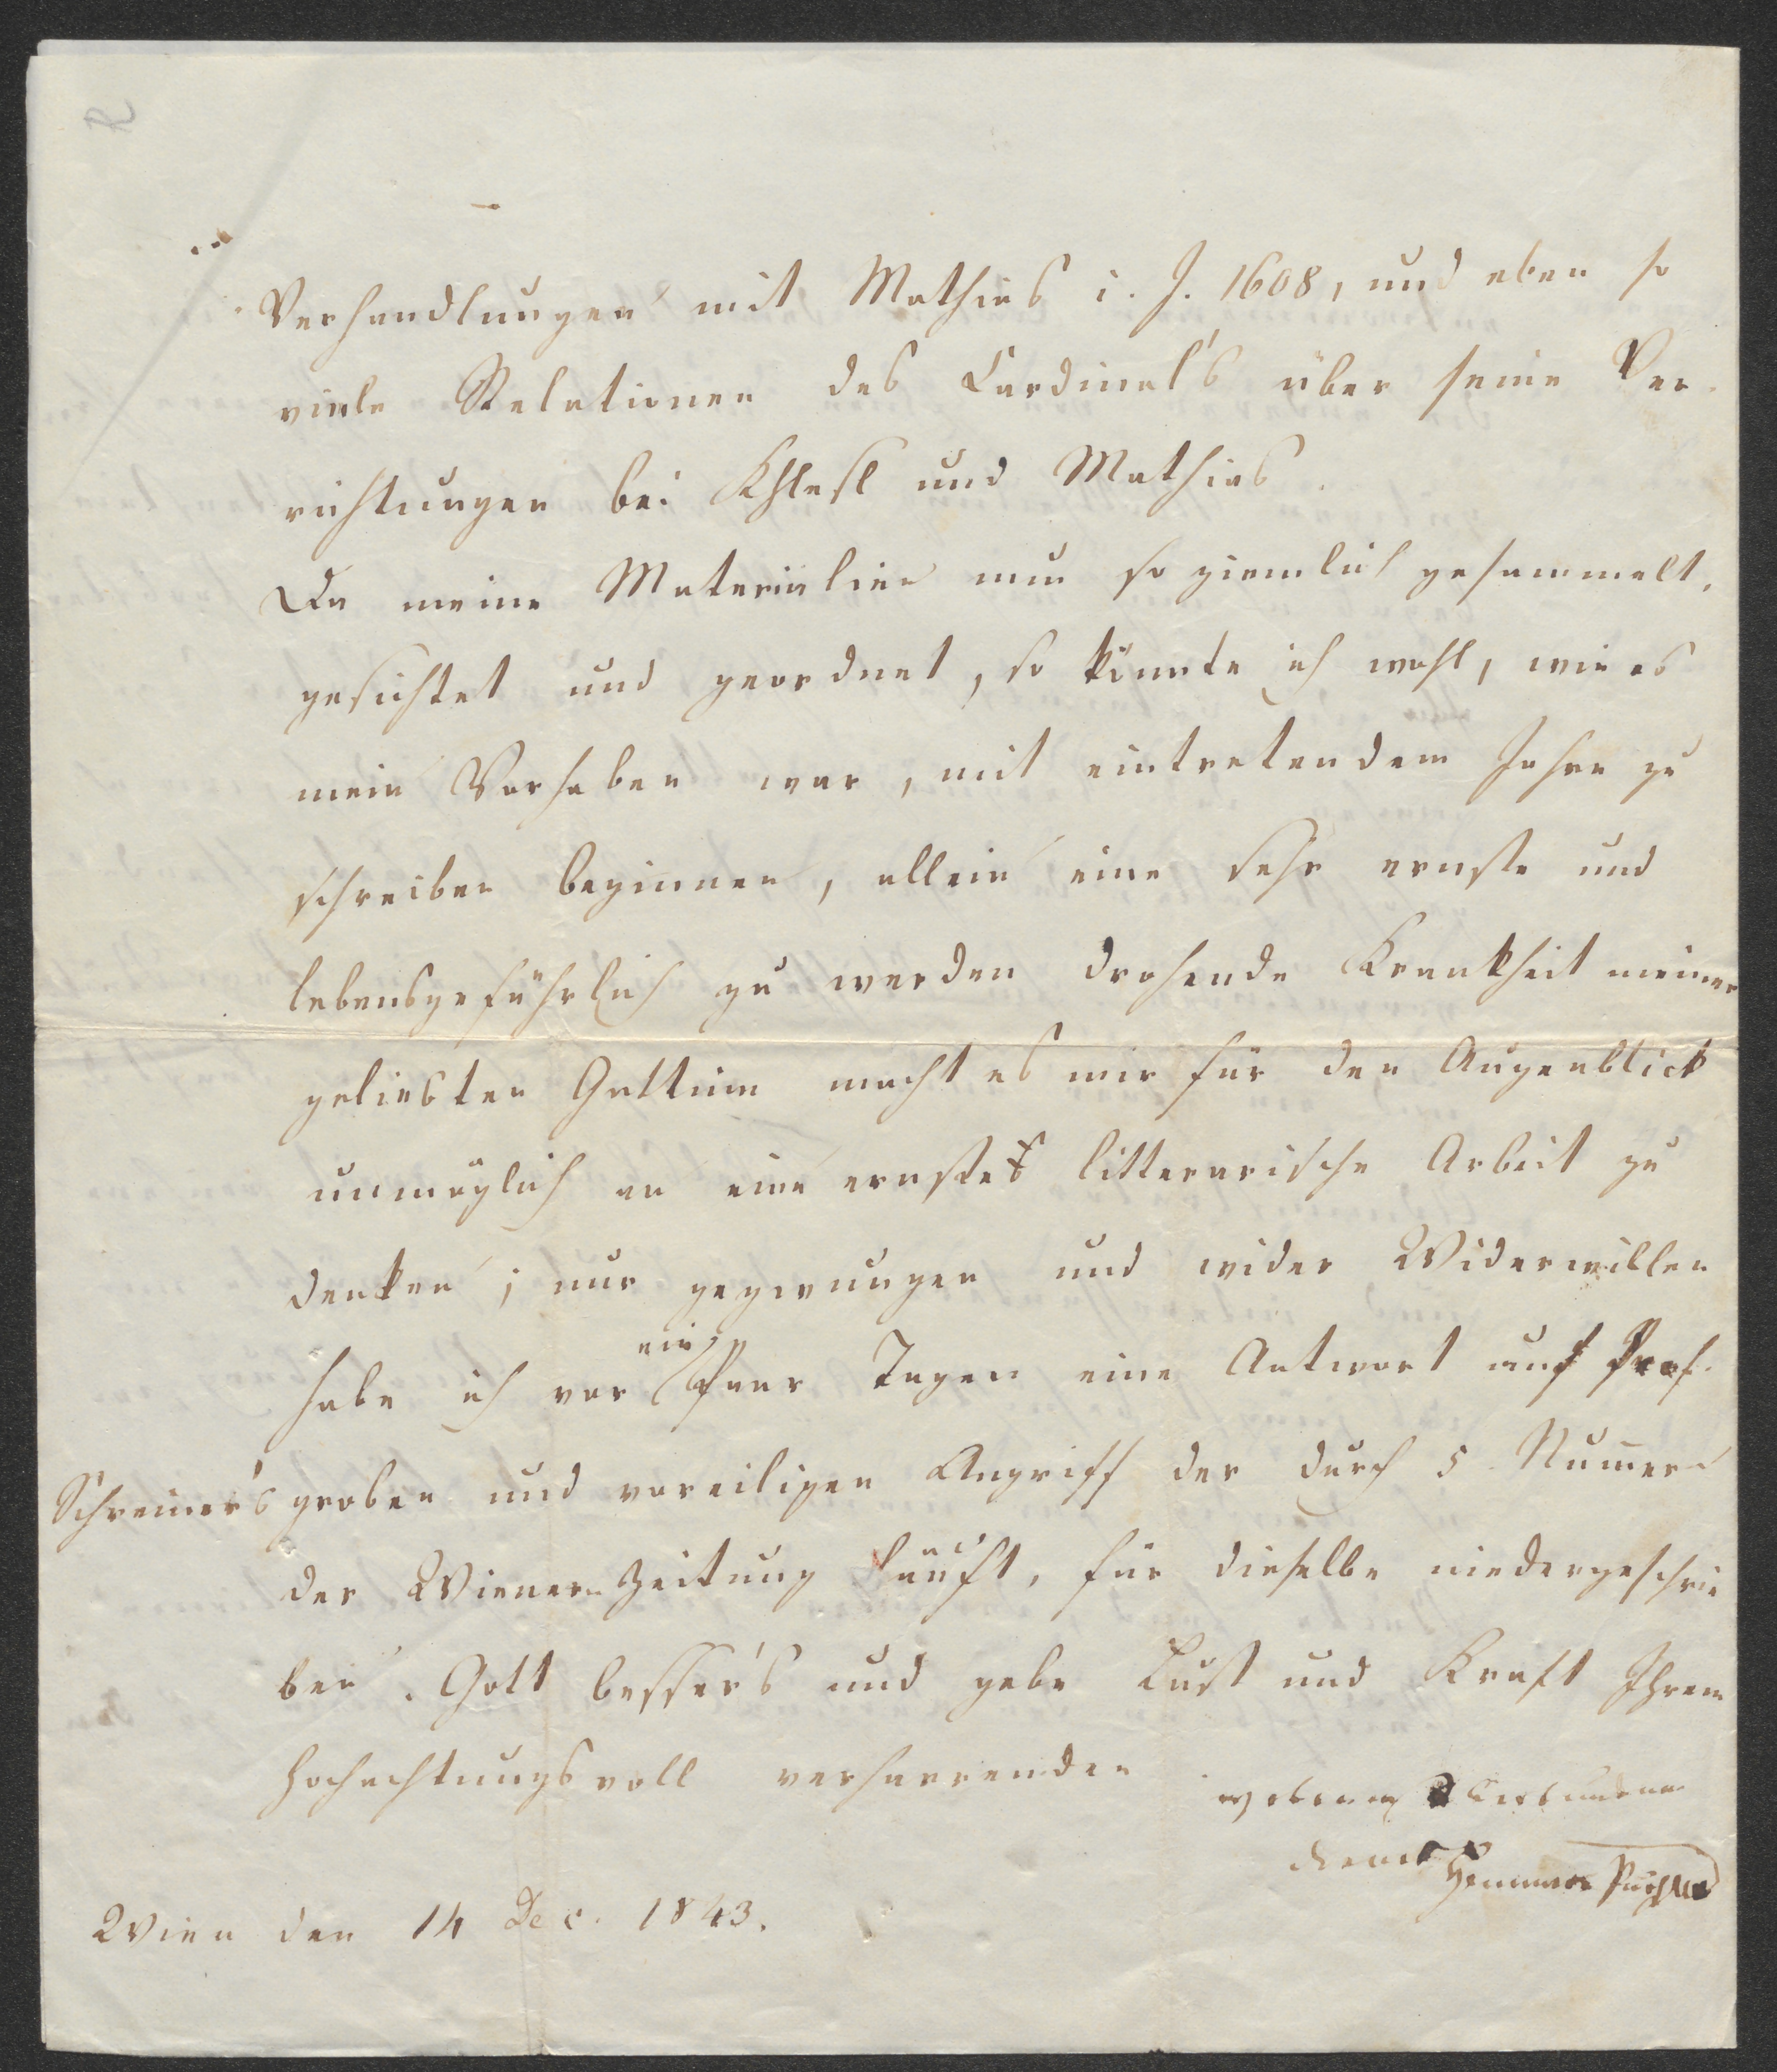 Verhandlungen mit Mathias i. J. 1608, und eben so
viele Relationen des Cardinal's über seine Ver-
richtungen bei Khlesl und Mathias.
Da meine Materialien nun so ziemlich gesammelt,
gesichtet und geordnet, so könnte ich wohl, wie es
mein Vorhaben war, mit eintretendem Jahre zu
schreiben beginnen, allein eine sehr ernste und
lebensgefährlich zu werden drohende Krankheit meiner
geliebten Gattinn macht es mir für den Augenblick
unmöglich an eine ernste litterarische Arbeit zu
denken; nur gezwungen und wider Widerwillen
habe ich vor ein Paar Tagen eine Antwort auf Prof.
Schreiner's groben und voreiligen Angriff der durch 5 Numern
der Wiener-Zeitung läuft, für dieselbe niedergeschrie
ben. Gott besser's und gebe Lust und Kraft Ihrem
hochachtungsvoll verharrenden
Hammer Purgstall
Wien den 14 Dec. 1843.